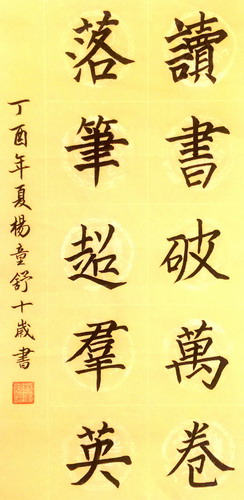 讀書破萬卷
落筆超羣英
丁酉年夏楊童舒十歲書